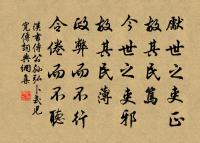 世之吏正
故其民篤
今世之吏邪
故其民薄
政弊而不行
令倦而不聽
漢書傳公孫弘卜式兒
寬傳詞典網集